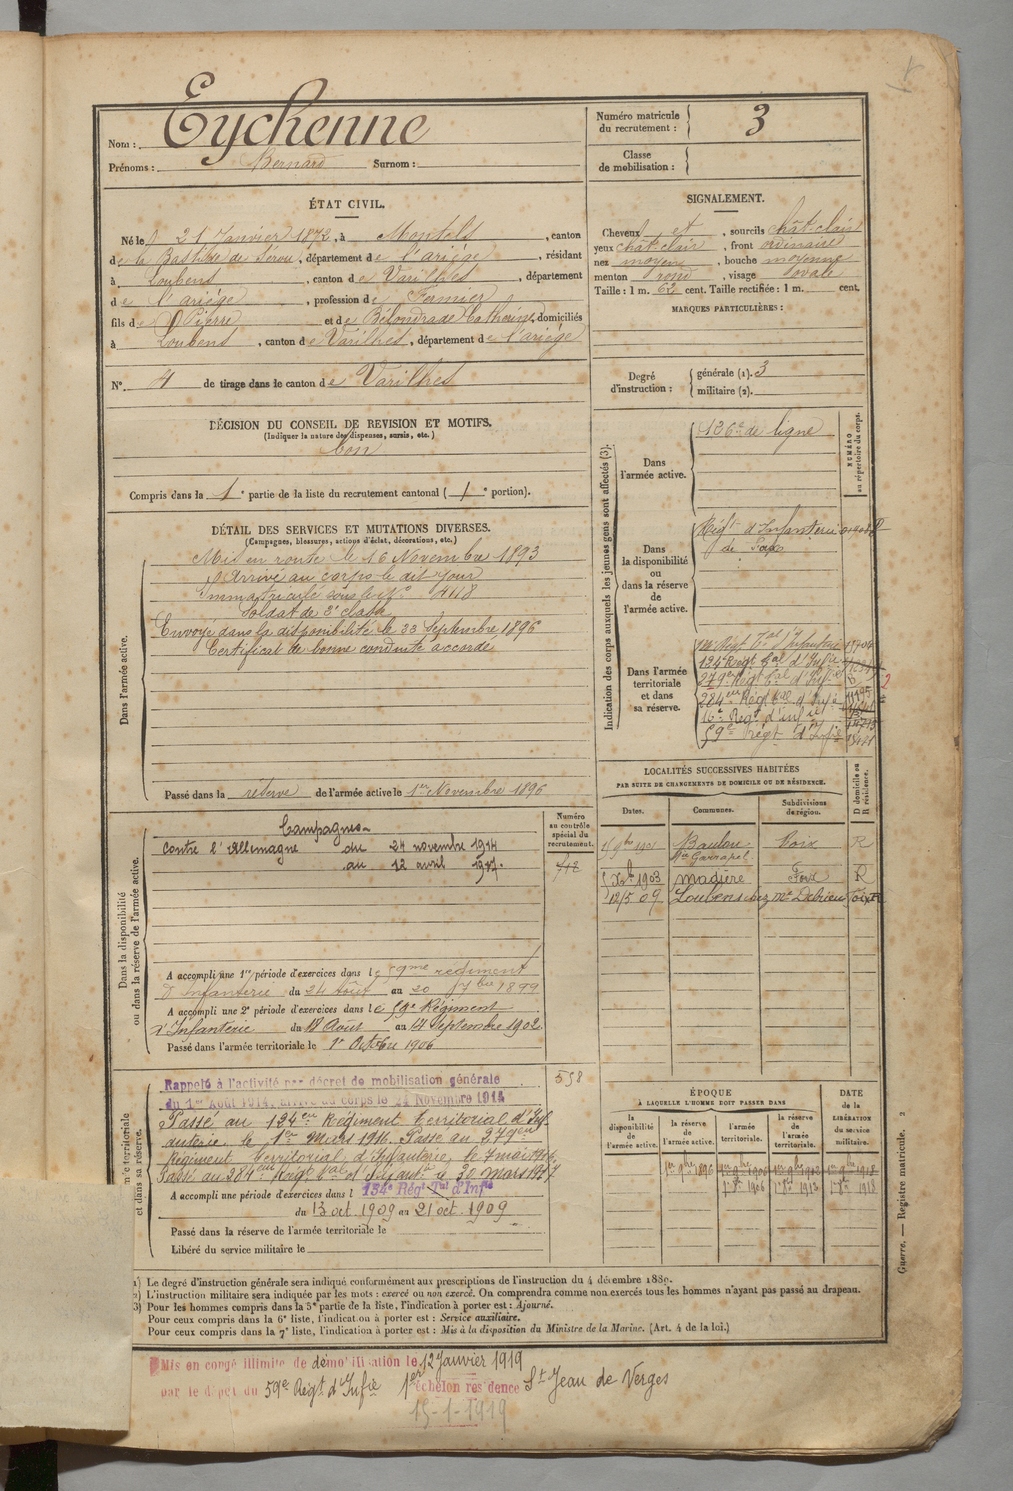 Nom : Eychenne
Prénoms : Bernard Surnom :
Numéro matricule
du recrutement : 3
Classe
de mobilisation :
ÉTAT CIVIL.
Né le 21 Janvier 1872, à Montels, canton
de la Bastide de Sérou, département de l'ariège, résidant
à Loubens, canton de Varilhes, département
de l'ariège, profession de Fermier
fils de Pierre et de Bélondrade Catherine, domiciliés
à Loubens, canton de Varilhes, département de l'ariège
N° 4 de tirage dans le canton de Varilhes
SIGNALEMENT.
Cheveux et, sourcils chât. clair
yeux chât. clair, front ordinaire
nez moyen, bouche moyenne
menton rond, visage ovale
Taille : 1 m. 62 cent. Taille rectifiée : 1 m. cent.
MARQUES PARTICULIÈRES :
Degré
d'instruction :
générale (1). 3
militaire (2).
DÉCISION DU CONSEIL DE REVISION ET MOTIFS.
(Indiquer la nature des dispenses, sursis, etc.)
bon
Compris dans la 1e partie de la liste du recrutement cantonal (1e portion).
DÉTAIL DES SERVICES ET MUTATIONS DIVERSES.
(Campagnes, blessures, actions d'éclat, décorations, etc.)
Dans l'armée active.
Mis en route le 16 Novembre 1893
Arrivé au corps le dit jour
Immatriculé sous le n° 4118
Soldat de 2e classe
Envoyé dans la disponibilité le 23 Septembre 1896
Certificat de bonne conduite accordé
Passé dans la réserve de l'armée active le 1er Novembre 1896
Indication des corps auxquels les jeunes gens sont affectés (3).
NUMÉRO
au répertoire du corps.
Dans
l'armée active.
126e de ligne
Dans
la disponibilité
ou
dans la réserve
de
l'armée active.
Régt d'Infanterie
de Foix
Dans l'armée
territoriale
et dans
sa réserve.
Régt Tal d'Infanterie
134e Régt tal d'Infie
279e Régt tal d'Infie
284eme Régt tal d'Infie
16e Régt d'infie
59e Régt d'Infie
2
LOCALITÉS SUCCESSIVES HABITÉES
PAR SUITE DE CHANGEMENTS DE DOMICILE OU DE RÉSIDENCE.
D domicile ou
R résidence.
Dates. Communes. Subdivisions
de région.
9bre 1901 Baulou Foix R
Mn Garrapel
Xbre 1903 madière Foix R
12/5 09 Loubens chez Mr Foix R
Dans la disponibilité
ou dans la réserve de l'armée active.
Numéro
au contrôle
spécial du
recrutement.
712
Campagnes
Contre l'Allemagne du 24 novembre 1914
au 12 avril 1917.
A accompli une 1re période d'exercices dans le 59me régiment
d'Infanterie du 24 Août au 20 7bre 1899
A accompli une 2e période d'exercices dans le 59e Régiment
d'Infanterie du 18 Août au 14 Septembre 1902
Passé dans l'armée territoriale le 1er Octobre 1906
et dans sa réserve.
558
Rappelé à l'activité par décret de mobilisation générale
du 1er Août 1914, arrivé au corps le 24 Novembre 1914
Passé au 134eme Régiment territorial d'Infanterie, le 1er mars 1916. Passé au 279eme
Régiment territorial d'Infanterie, le 7 mai 1916.
Passé au 284eme Régt tal d'Infanterie le 30 mars 1917
A accompli une période d'exercices dans le 134e Régt Tal d'Infie
du 13 oct. 1909 au 21 oct. 1909
Passé dans la réserve de l'armée territoriale le
Libéré du service militaire le
ÉPOQUE
À LAQUELLE L'HOMME DOIT PASSER DANS
DATE
de la
LIBÉRATION
du service
militaire.
la
disponibilité
de
l'armée active.
la réserve
de
l'armée active.
l'armée
territoriale.
la réserve
de
l'armée
territoriale.
1er 9bre 1896 1er 9bre 1906 1er 9bre 1912 1er 9bre 1918
1er 8bre 1906 1er 8bre 1912 1er 8bre 1918
Le degré d'instruction générale sera indiqué conformément aux prescriptions de l'instruction du 4 décembre 1889.
L'instruction militaire sera indiquée par les mots : exercé ou non exercé. On comprendra comme non exercés tous les hommes n'ayant pas passé au drapeau.
Pour les hommes compris dans la 5e partie de la liste, l'indication à porter est : Ajourné.
Pour ceux compris dans la 6e liste, l'indication à porter est : Service auxiliaire.
Pour ceux compris dans la 7e liste, l'indication à porter est : Mis à la disposition du Ministre de la Marine. (Art. 4 de la loi.)
Guerre. — Registre matricule. 2
Mis en congé illimité de démobilisation le 12 Janvier 1919
par le dépôt du 59e Régt d'Infie 1er échelon résidence St Jean de Verges
15-1-1919